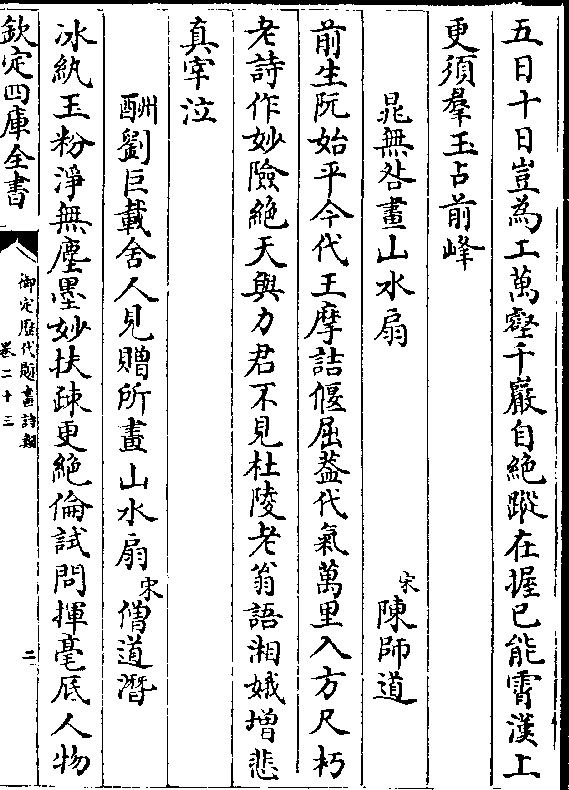 五日十日豈為工萬壑千巖自絶蹤在握已能霄漢上
更須羣玉占前峰
晁無咎畫山水扇 宋陳師道
前生阮始平今代王摩詰偃屈葢代氣萬里入方尺朽
老詩作妙險絶天與力君不見杜陵老翁語湘娥增悲
真宰泣
酬劉巨載舍人見贈所畫山水扇 宋僧道潛
冰紈玉粉淨無塵墨妙扶疎更絶倫試問揮毫底人物
欽定四庫全書
御定歷代題畫詩類
卷二十三
二